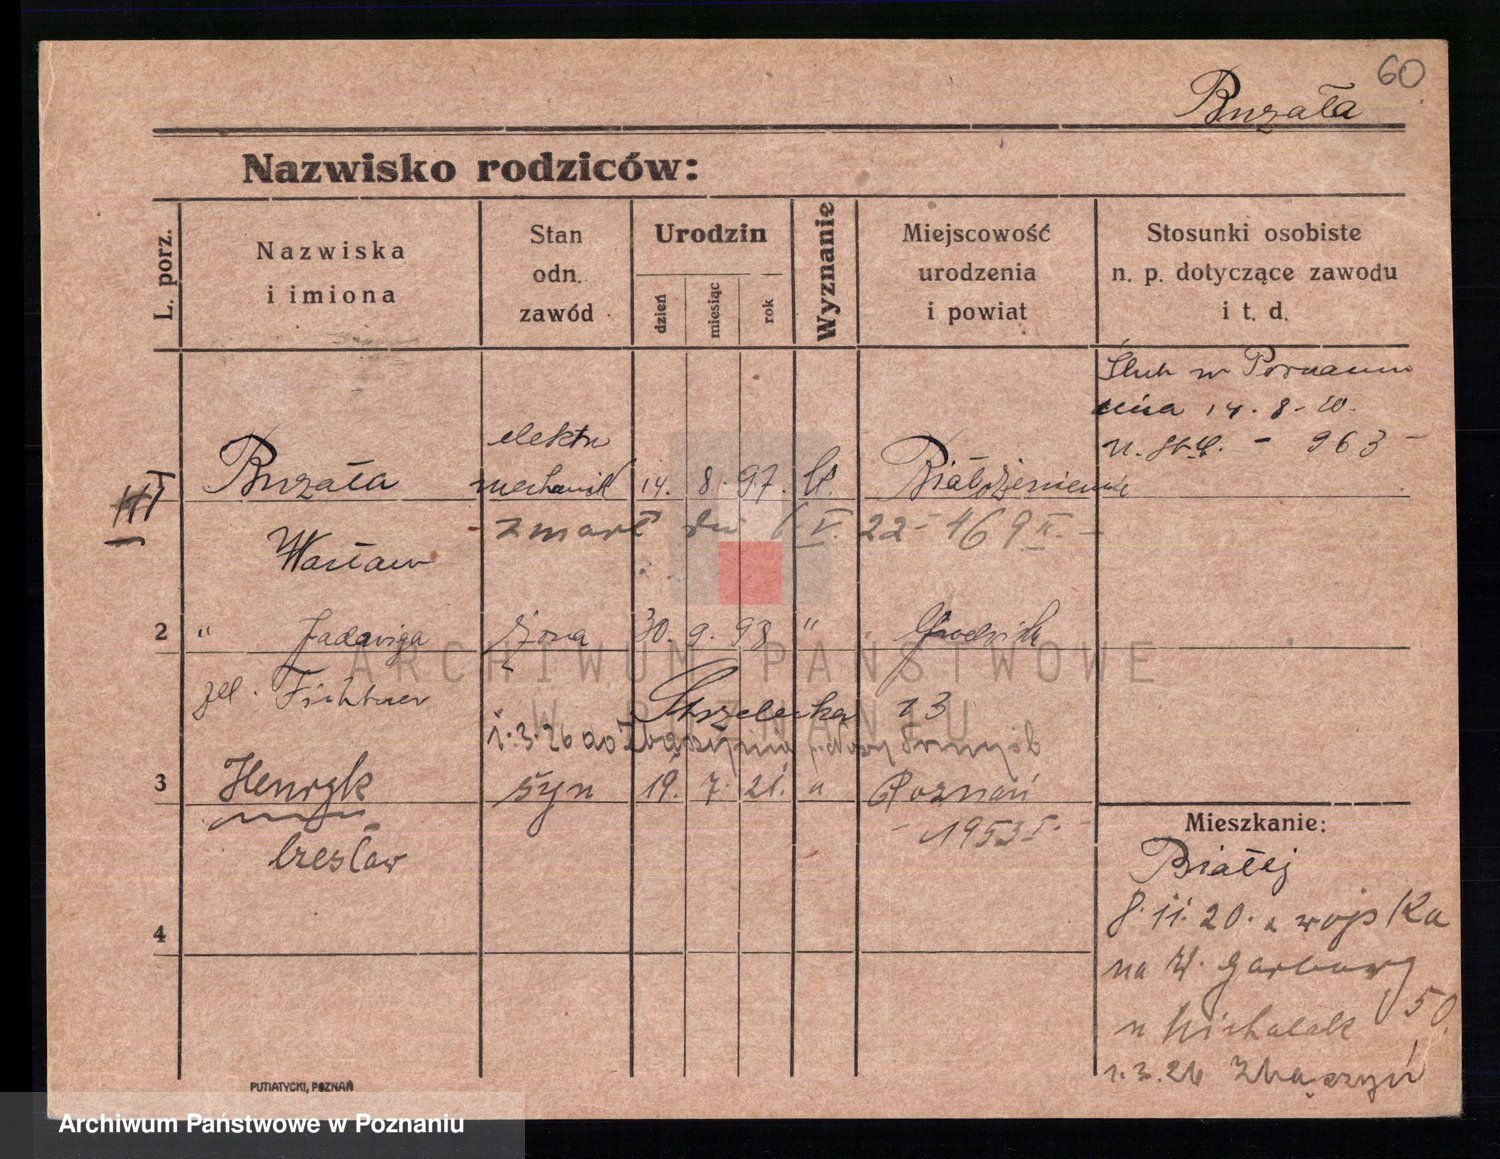 60
Buzała
Nazwisko rodziców:
L. porz.
Nazwiska
i imiona
Stan
odn.
zawód
Urodzin
dzień
miesiąc
rok
Wyznanie
Miejscowość
urodzenia
i powiat
Stosunki osobiste
n. p. dotyczące zawodu
i t. d.
Ślub w Poznaniu
dnia 14. 8. 20.
963
elektro
Buzała mechanik 14. 8. 97. kt.
zmarł dn 6 V. 22 - 469 II. -
Wacław
2 " Jadwiga żona 30. 9. 98 " Grodzisk
zd. Fichtner Strzelecka 13
1.3.26 do Zbąszynia
3 Henryk syn 19. 7. 21. " Poznań
- 1953 I. -
Czesław
4
Mieszkanie:
Białej
8.11.20. z wojska
na W. Garbary
50.
u Michalak
1.3.26 Zbąszyń
PUTIATYCKI, POZNAŃ
ARCHIWUM PAŃSTWOWE
W POZNANIU
Archiwum Państwowe w Poznaniu